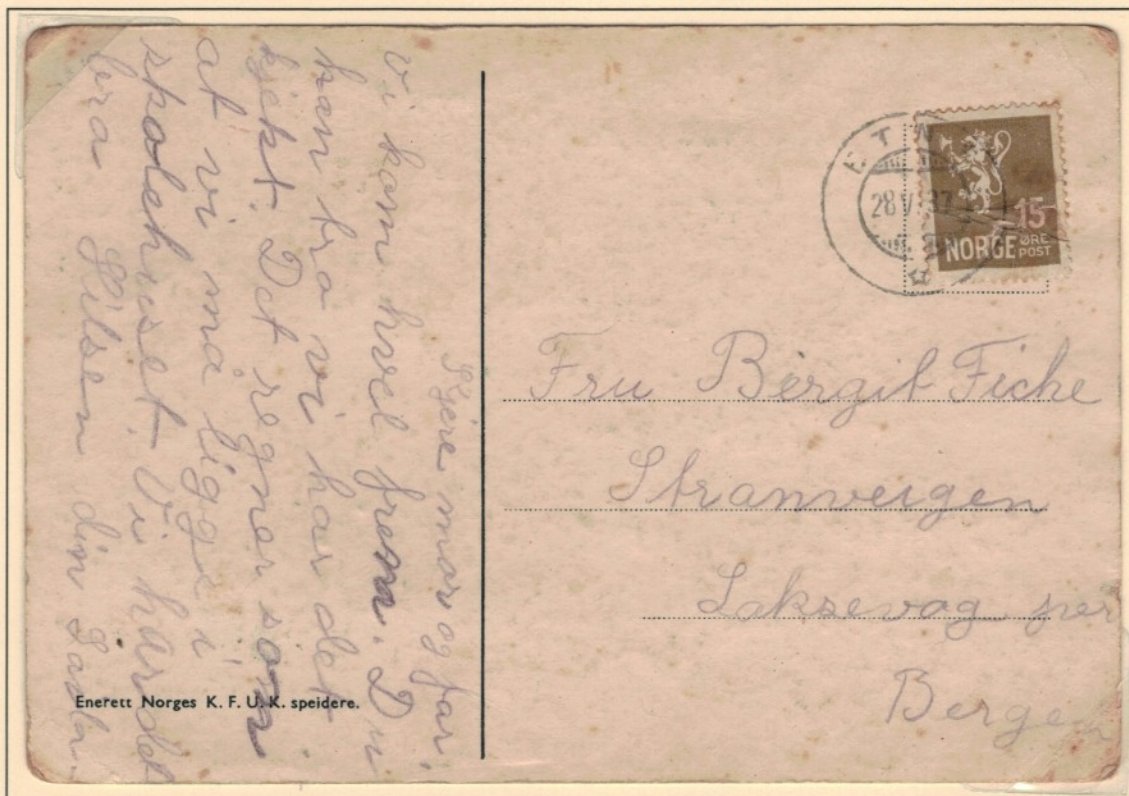 Kjere mor og far.
Vi kom hvel frem. Du
kan tro vi har det
kjekt. Det regner som
at vi må ligge i
skolehuset. Vi har det
bra Hilsen din
Enerett Norges K. F. U. K. speidere.
ETN
28 V 37
15
NORGE ØRE
POST
Fru Bergit Fiche
Stranveigen
Laksevag per
Bergen